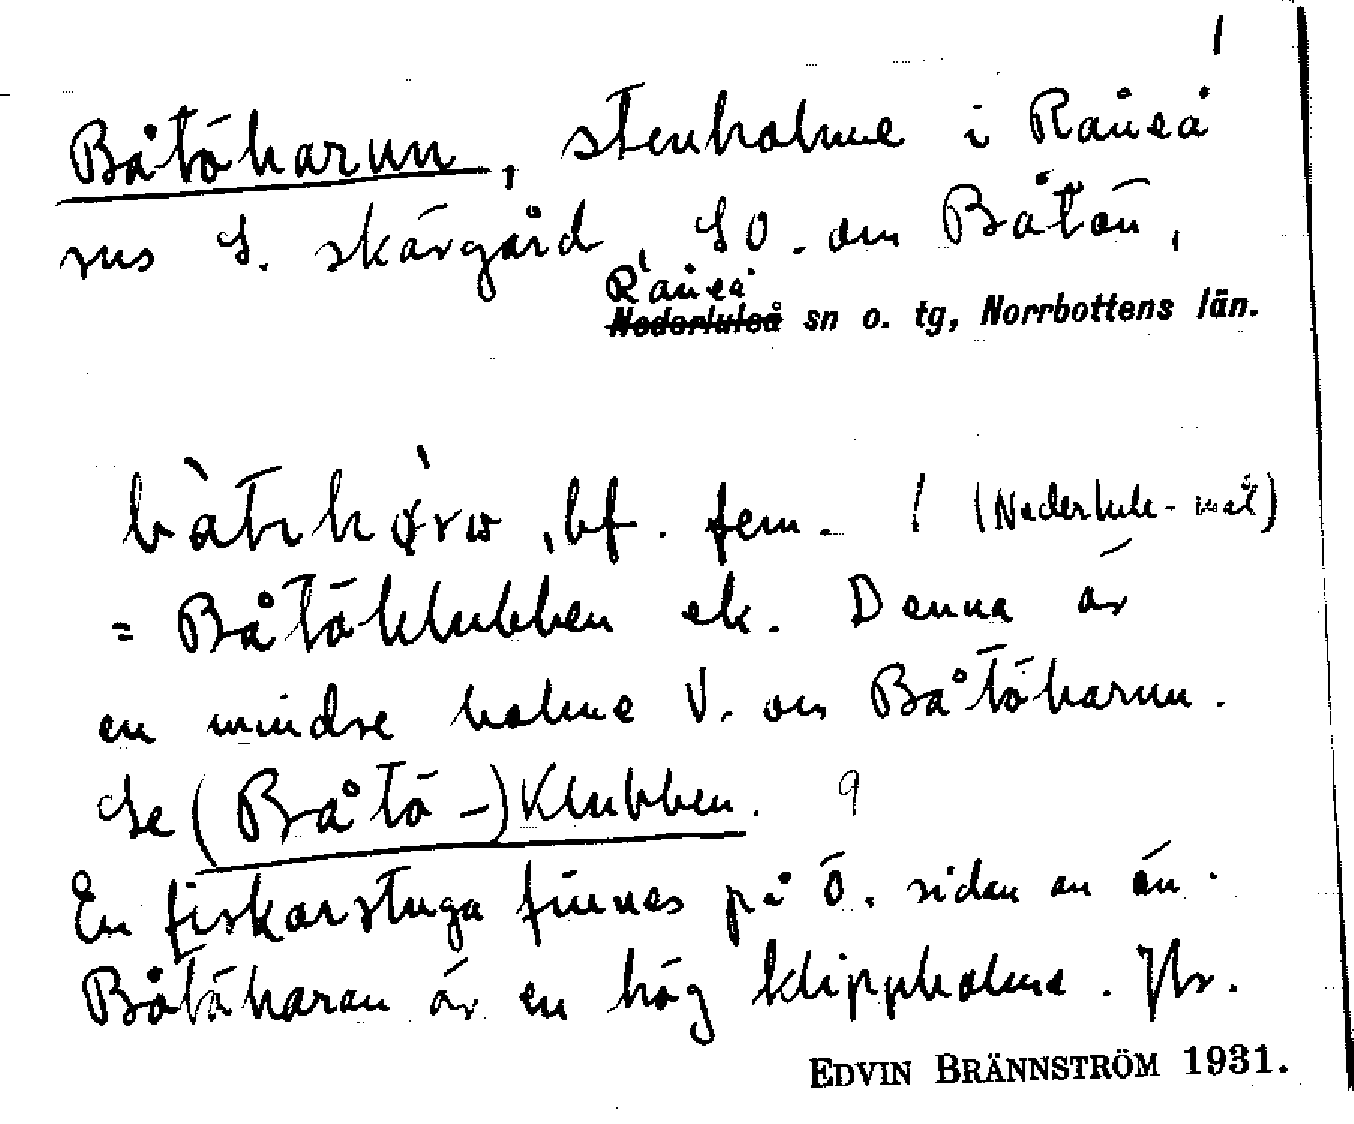 1
Båtöharun, stenholme i Råneå
sns S. skärgård, SO. om Båtön,
Råneå
Nederluleå sn o. tg, Norrbottens län.
bf. fem. / (Nederlule-mål)
= Båtöklubben ek. Denna är
en mindre holme V. om Båtöharun.
Se (Båtö-)Klubben.
En fiskarstuga finnes på Ö. sidan av ön.
Båtöharan är en hög klippholme.
EDVIN BRÄNNSTRÖM 1931.